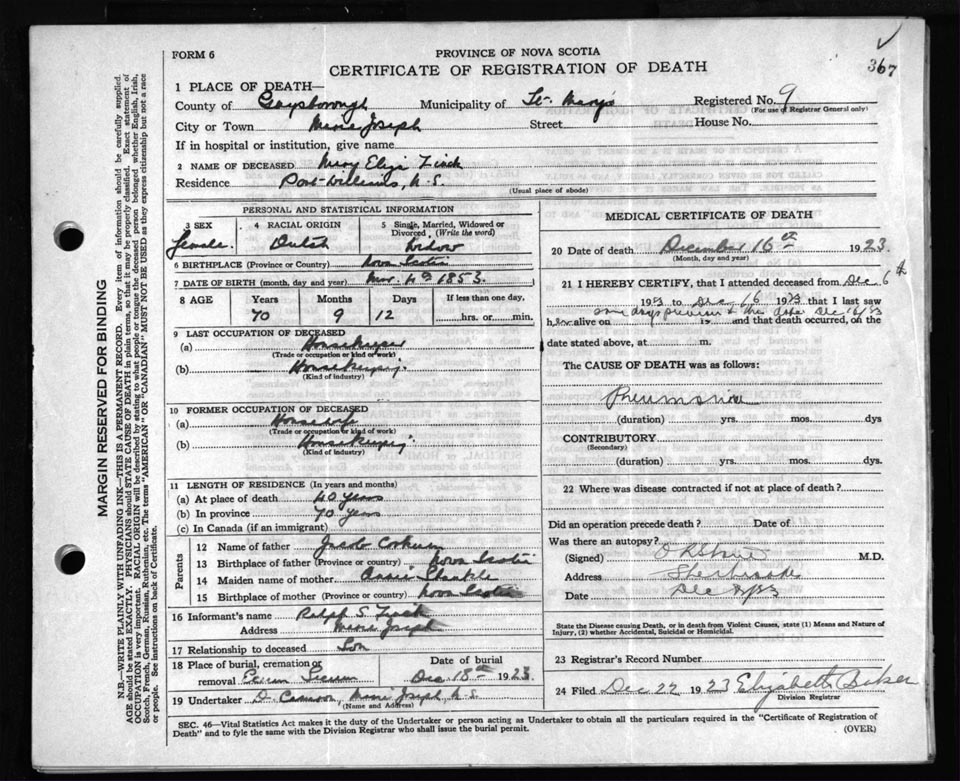 FORM 6
PROVINCE OF NOVA SCOTIA
CERTIFICATE OF REGISTRATION OF DEATH
367
1 PLACE OF DEATH—
County of Guysborough Municipality of St. Mary's Registered No. 9
(For use of Registrar General only)
City or Town Marie Joseph Street House No.
If in hospital or institution, give name
2 NAME OF DECEASED Mary Eliza
Residence Port Williams, N.S.
(Usual place of abode)
PERSONAL AND STATISTICAL INFORMATION
3 SEX 4 RACIAL ORIGIN 5 Single, Married, Widowed or Divorced (Write the word)
female. Dutch Widow
6 BIRTHPLACE (Province or Country) Nova Scotia
7 DATE OF BIRTH (month, day and year) Mar. 4th 1853.
8 AGE Years Months Days If less than one day,
70 9 12 hrs. or min.
9 LAST OCCUPATION OF DECEASED
(a) Housekeeper
(Trade or occupation or kind of work)
(b) Housekeeping
(Kind of industry)
10 FORMER OCCUPATION OF DECEASED
(a) Housewife
(Trade or occupation or kind of work)
(b) Housekeeping
(Kind of industry)
11 LENGTH OF RESIDENCE (In years and months)
(a) At place of death 40 years
(b) In province 70 years
(c) In Canada (if an immigrant)
Parents
12 Name of father Jacob Corkum
13 Birthplace of father (Province or country) Nova Scotia
14 Maiden name of mother Annie
15 Birthplace of mother (Province or country) Nova Scotia
16 Informant's name Ralph S.
Address Marie Joseph
17 Relationship to deceased Son
18 Place of burial, cremation or removal Date of burial
Dec 18th 1923.
19 Undertaker D. Cameron, Marie Joseph N.S.
(Name and Address)
MEDICAL CERTIFICATE OF DEATH
20 Date of death December 16th 1923.
(Month, day and year)
21 I HEREBY CERTIFY, that I attended deceased from Dec 6th
1923 to Dec 16 1923 that I last saw
some days previous to the date Dec 16/23
her alive on is and that death occurred, on the
date stated above, at m.
The CAUSE OF DEATH was as follows:
Pneumonia
(duration) yrs. mos. dys
CONTRIBUTORY
(Secondary)
(duration) yrs. mos. dys.
22 Where was disease contracted if not at place of death?
Did an operation precede death? Date of
Was there an autopsy?
(Signed) M.D.
Address Sherbrooke
Date Dec
State the Disease causing Death, or in death from Violent Causes, state (1) Means and Nature of Injury, (2) whether Accidental, Suicidal or Homicidal.
23 Registrar's Record Number
24 Filed Dec 22 1923 Elizabeth Baker
Division Registrar
SEC. 46—Vital Statistics Act makes it the duty of the Undertaker or person acting as Undertaker to obtain all the particulars required in the "Certificate of Registration of
Death" and to fyle the same with the Division Registrar who shall issue the burial permit. (OVER)
MARGIN RESERVED FOR BINDING
N.B.—WRITE PLAINLY WITH UNFADING INK—THIS IS A PERMANENT RECORD. Every item of information should be carefully supplied.
AGE should be stated EXACTLY. PHYSICIANS should STATE CAUSE OF DEATH in plain terms, so that it may be properly classified. Exact statement of
OCCUPATION is very important. RACIAL ORIGIN will be described by stating to what people or tongue the deceased person belonged whether English, Irish,
Scotch, French, German, Russian, Ruthenian, etc. The terms "AMERICAN" OR "CANADIAN" MUST NOT BE USED as they express citizenship but not a race
or people. See instructions on back of Certificate.